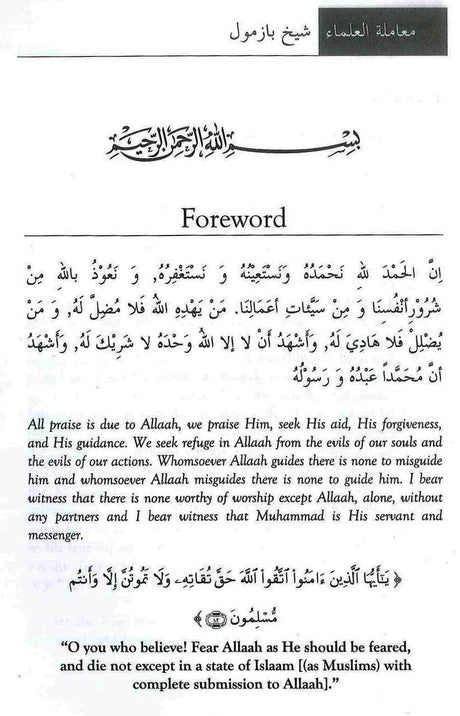 معاملة العلماء شيخ بازمول
بِسْمِ اللهِ الرَّحْمٰنِ الرَّحِيْمِ
Foreword
إِنَّ الحَمْدَ للهِ نَحْمَدُهُ وَنَسْتَعِيْنُهُ وَ نَسْتَغْفِرُهُ, وَ نَعُوْذُ بِاللهِ مِنْ
شُرُوْرِ أَنْفُسِنَا وَ مِنْ سَيِّئَاتِ أَعْمَالِنَا. مَنْ يَهْدِهِ اللهُ فَلَا مُضِلَّ لَهُ, وَ مَنْ
يُضْلِلْ فَلَا هَادِيَ لَهُ, وَأَشْهَدُ أَنْ لَا إِلا اللهُ وَحْدَهُ لَا شَرِيْكَ لَهُ, وَأَشْهَدُ
أنَّ مُحَمَّداً عَبْدُهُ وَ رَسُوْلُهُ
All praise is due to Allaah, we praise Him, seek His aid, His forgiveness,
and His guidance. We seek refuge in Allaah from the evils of our souls and
the evils of our actions. Whomsoever Allaah guides there is none to misguide
him and whomsoever Allaah misguides there is none to guide him. I bear
witness that there is none worthy of worship except Allaah, alone, without
any partners and I bear witness that Muhammad is His servant and
messenger.
﴿ يَـٰٓأَيُّهَا ٱلَّذِينَ ءَامَنُوا۟ ٱتَّقُوا۟ ٱللَّهَ حَقَّ تُقَاتِهِۦ وَلَا تَمُوتُنَّ إِلَّا وَأَنتُم
مُّسْلِمُونَ ﴾
“O you who believe! Fear Allaah as He should be feared,
and die not except in a state of Islaam [(as Muslims) with
complete submission to Allaah].”